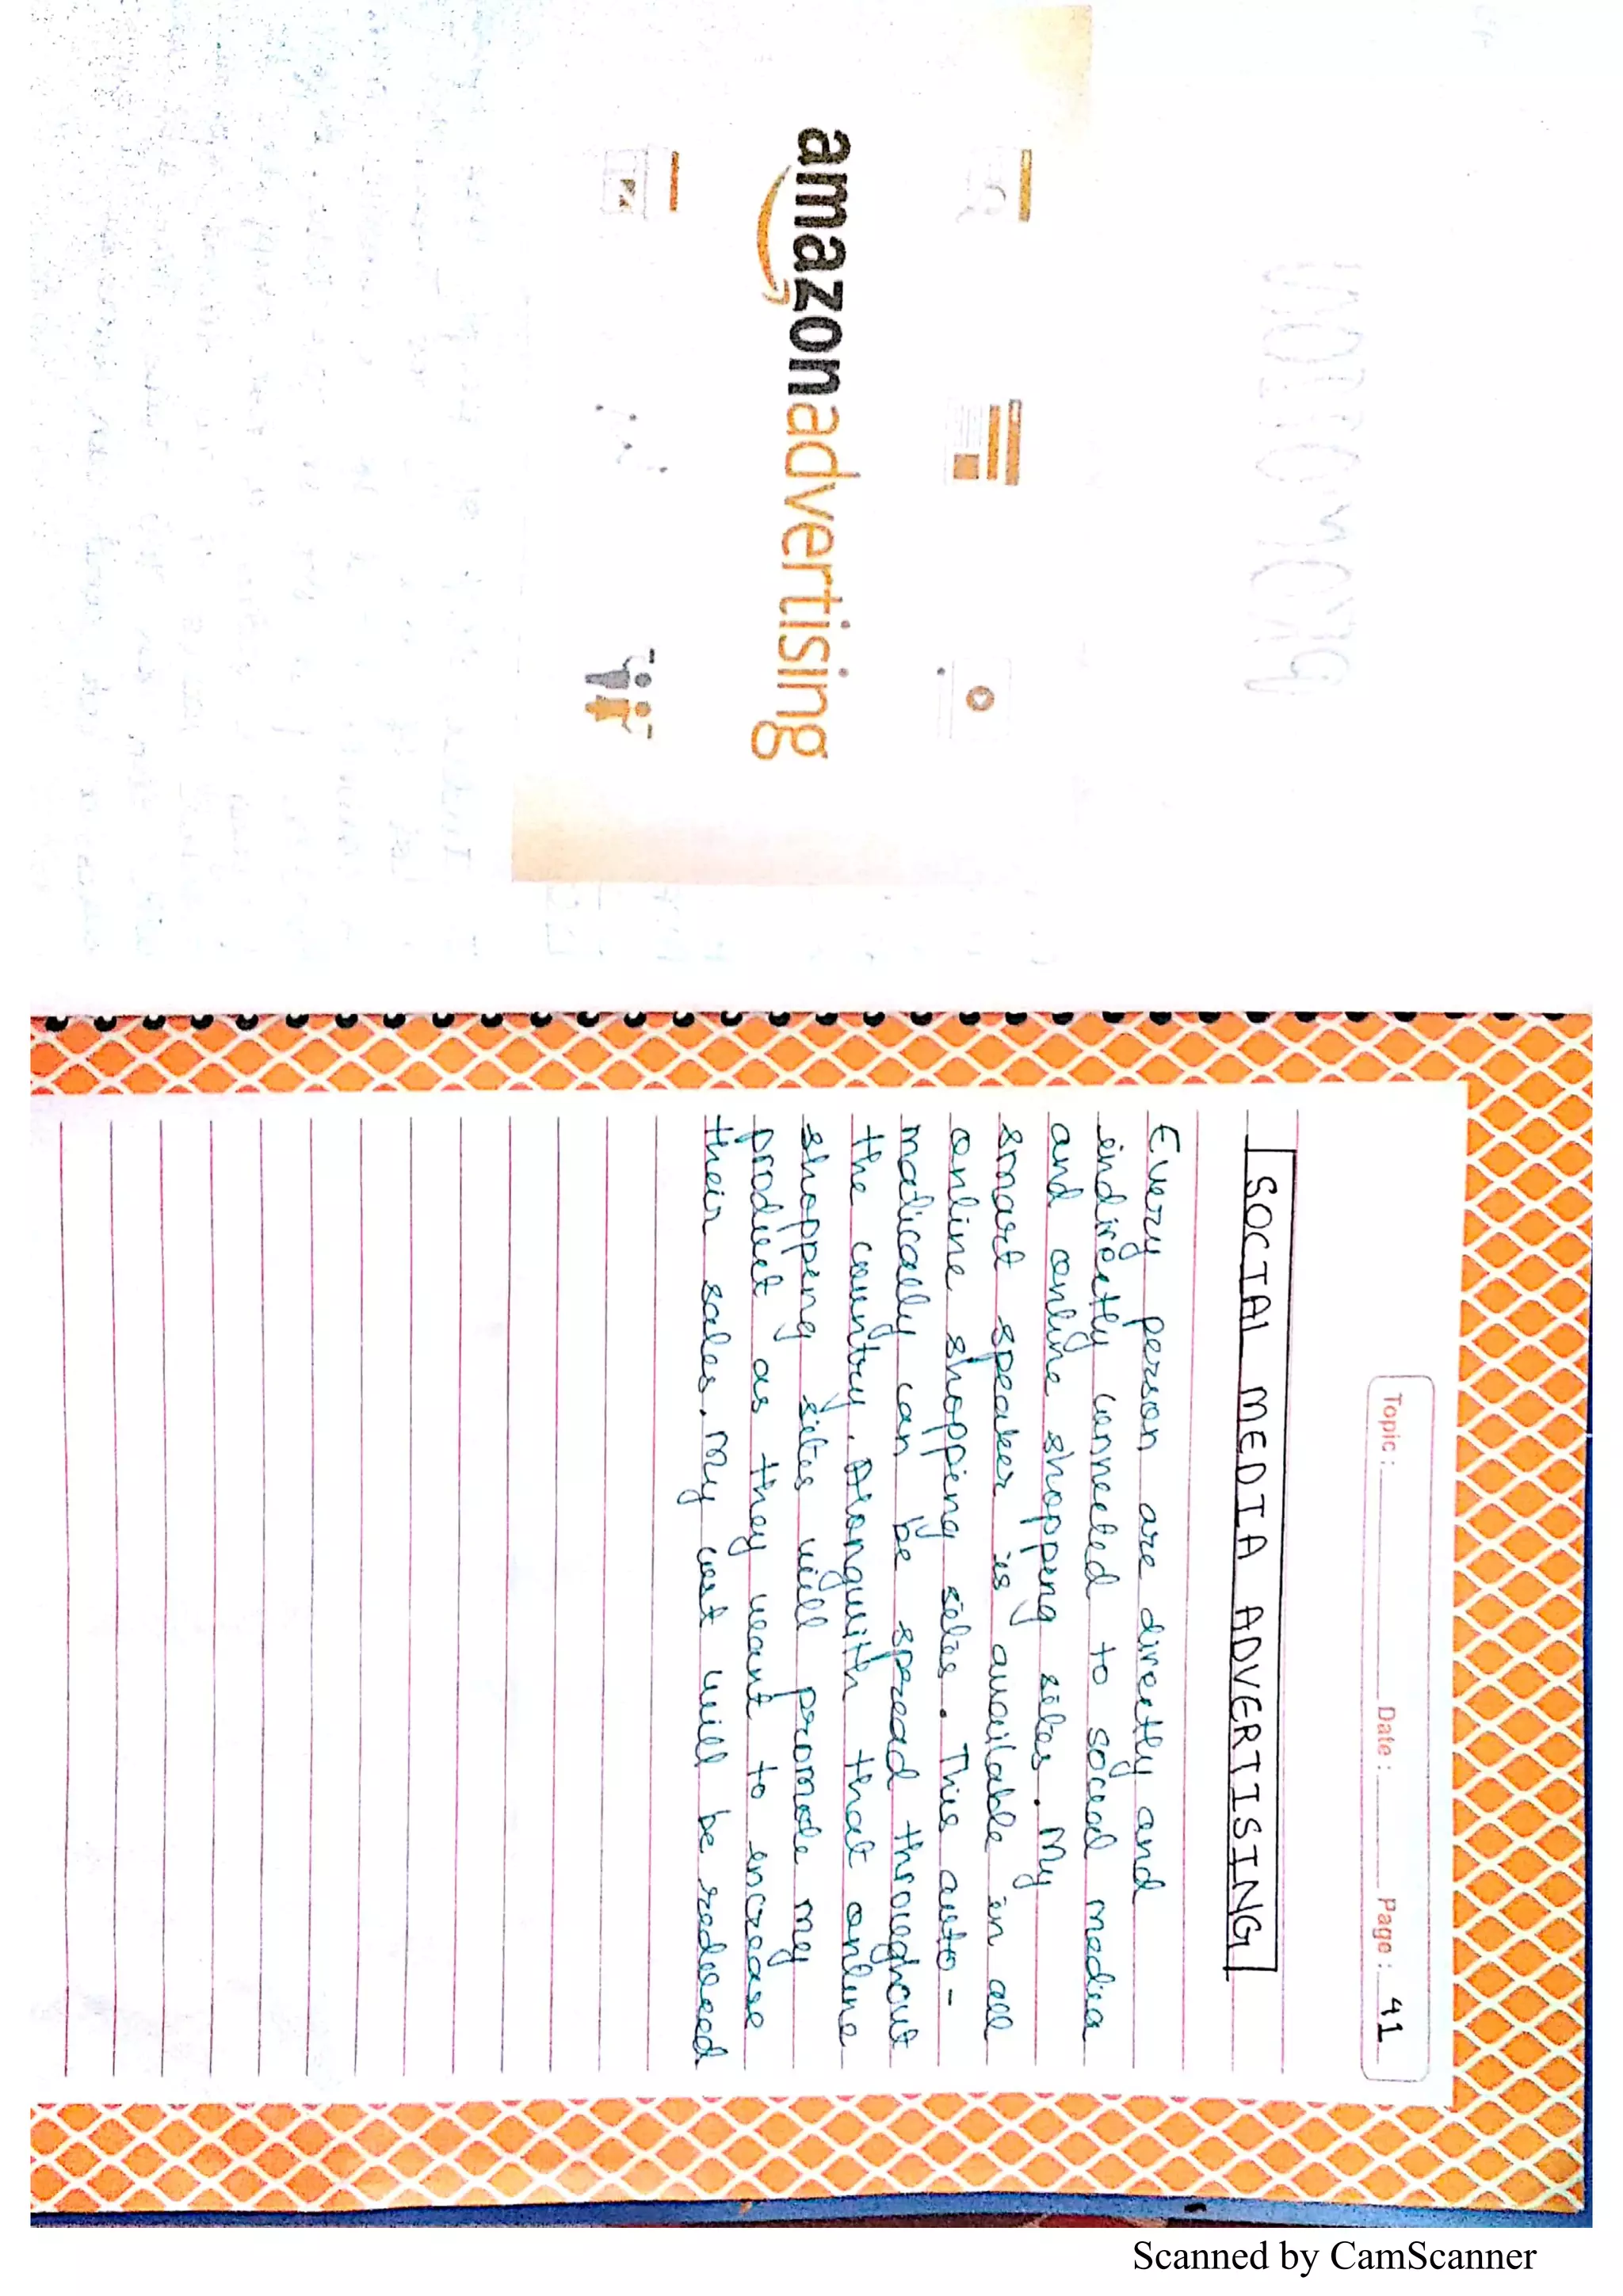 amazonadvertising
Topic : Date : Page : 41
SOCIAL MEDIA ADVERTISING
Every person are directly and
indirectly connected to social media
and online shopping sites. My
smart speaker is available in all
online shopping sites. This auto-
matically can be spread throughout
the country. Alongwith that online
shopping sites will promode my
product as they want to increase
their sales. My cost will be reduced
Scanned by CamScanner